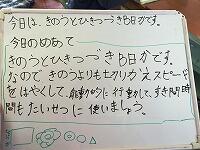 今日は、きのうとひきつづきB日かです。
今日のめあて
きのうとひきつづきB日かです。
なので きのうよりもセクリかえスピード
をはやくして、能動的に行動して、すき間時
間もたいせつに使いましょう。